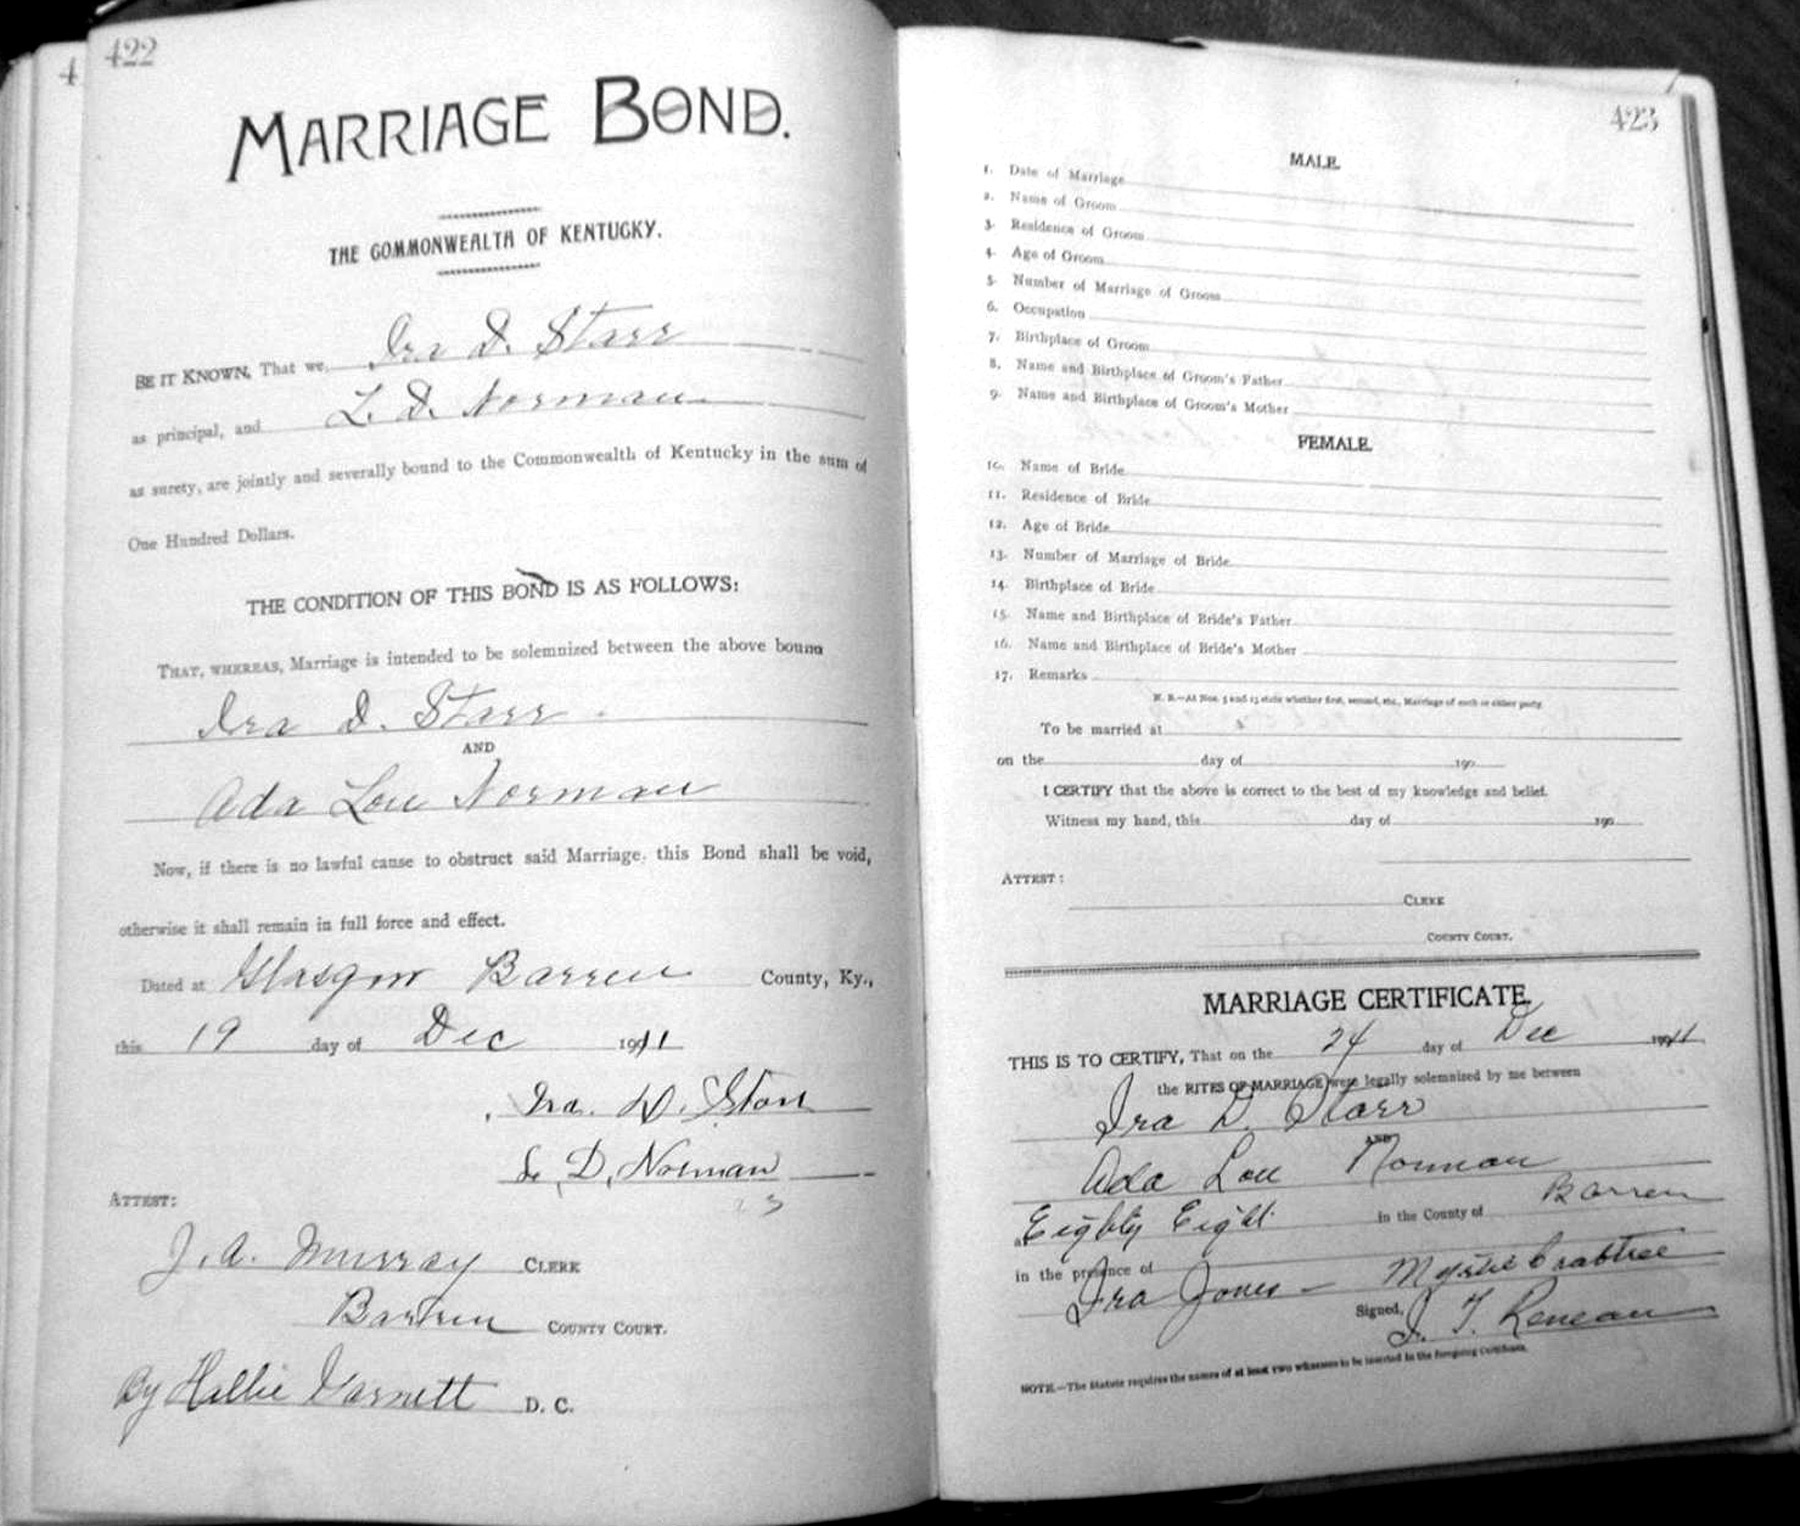 4
422
MARRIAGE BOND.
THE COMMONWEALTH OF KENTUCKY.
BE IT KNOWN, That we, Ira D. Starr
as principal, and L. D. Norman
as surety, are jointly and severally bound to the Commonwealth of Kentucky in the sum of
One Hundred Dollars.
THE CONDITION OF THIS BOND IS AS FOLLOWS:
THAT, WHEREAS, Marriage is intended to be solemnized between the above bound
Ira D. Starr
AND
Ada Lou Norman
Now, if there is no lawful cause to obstruct said Marriage, this Bond shall be void,
otherwise it shall remain in full force and effect.
Dated at Glasgow Barren County, Ky.,
this 19 day of Dec 1911
Ira. D. Starr
L. D. Norman
ATTEST:
J. A. Murray CLERK
Barren COUNTY COURT.
By Hallie Garnett D. C.
423
MALE.
1. Date of Marriage
2. Name of Groom
3. Residence of Groom
4. Age of Groom
5. Number of Marriage of Groom
6. Occupation
7. Birthplace of Groom
8. Name and Birthplace of Groom's Father
9. Name and Birthplace of Groom's Mother
FEMALE.
10. Name of Bride
11. Residence of Bride
12. Age of Bride
13. Number of Marriage of Bride
14. Birthplace of Bride
15. Name and Birthplace of Bride's Father
16. Name and Birthplace of Bride's Mother
17. Remarks
N. B.—At Nos. 5 and 13 state whether first, second, etc., Marriage of each or either party.
To be married at
on the day of 190
I CERTIFY that the above is correct to the best of my knowledge and belief.
Witness my hand, this day of 190
ATTEST:
CLERK
COUNTY COURT.
MARRIAGE CERTIFICATE.
THIS IS TO CERTIFY, That on the 24 day of Dec 1911
the RITES OF MARRIAGE were legally solemnized by me between
Ira D. Starr
AND
Ada Lou Norman
at Eighty Eight in the County of Barren
in the presence of
Ira Jones – Myrtie Crabtree
Signed, J. T. Reneau
NOTE.—The Statute requires the names of at least two witnesses to be inserted in the foregoing Certificate.